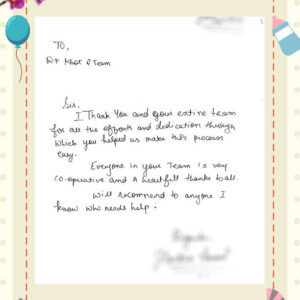 TO,
Dr Khot & Team
Sir.
I Thank You and your entire team
for all the efforts and dedication through
which you helped us make this process
easy.
Everyone in your Team is very
co-operative and A heartfelt thanks to all.
will recommend to anyone I
know who needs help.